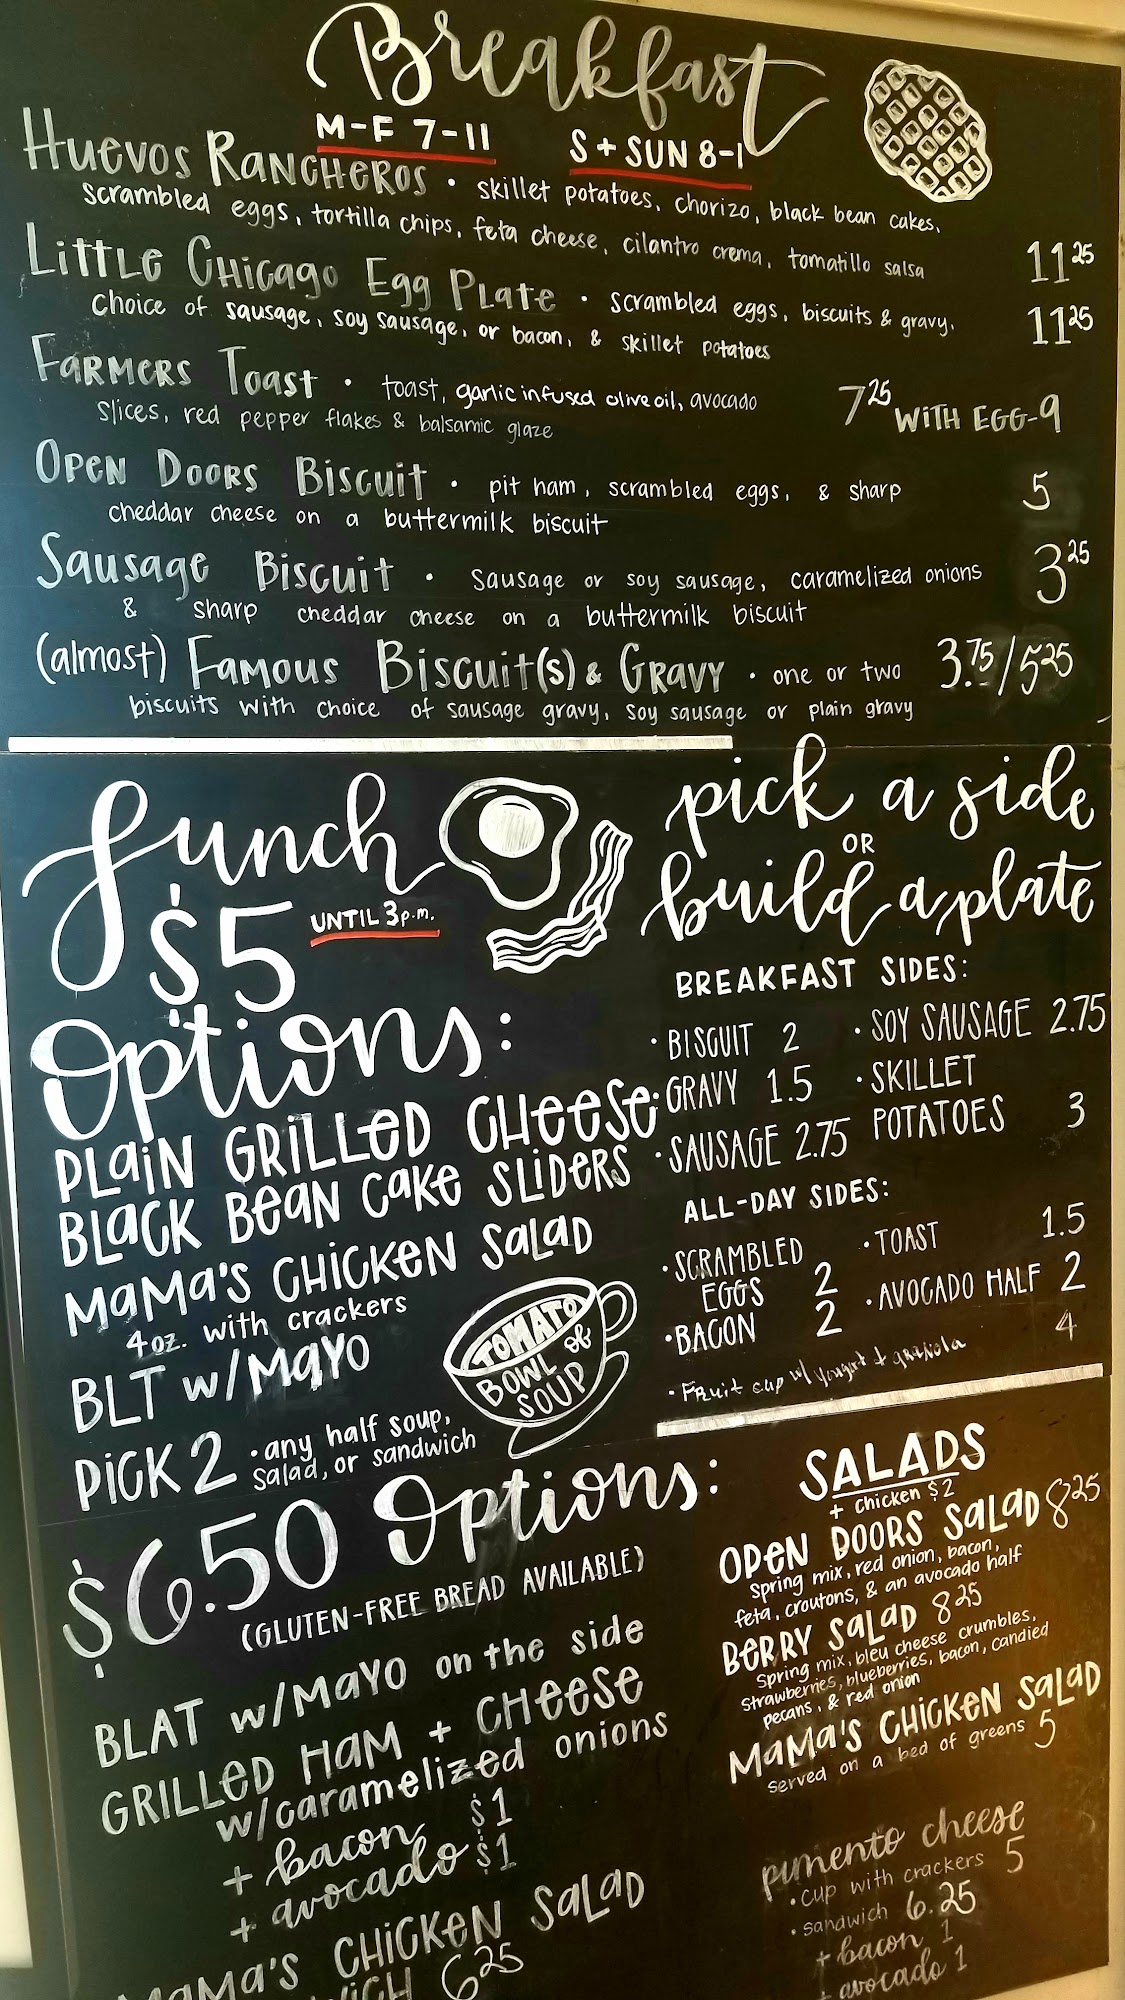 Breakfast
M-F 7-11 S + SUN 8-1
HUEVOS RANCHEROS • skillet potatoes, chorizo, black bean cakes,
scrambled eggs, tortilla chips, feta cheese, cilantro crema, tomatillo salsa 11 25
LITTLE CHICAGO EGG PLATE • scrambled eggs, biscuits & gravy,
choice of sausage, soy sausage, or bacon, & skillet potatoes 11 25
FARMERS TOAST • toast, garlic infused olive oil, avocado
slices, red pepper flakes & balsamic glaze 7 25 WITH EGG-9
OPEN DOORS BISCUIT • pit ham, scrambled eggs, & sharp
cheddar cheese on a buttermilk biscuit 5
SAUSAGE BISCUIT • sausage or soy sausage, caramelized onions
& sharp cheddar cheese on a buttermilk biscuit 3 25
(almost) FAMOUS BISCUIT(S) & GRAVY • one or two
biscuits with choice of sausage gravy, soy sausage or plain gravy 3.75/5 25
Lunch
UNTIL 3 p.m.
$5
Options:
PLAIN GRILLED CHEESE
BLACK BEAN CAKE SLIDERS
MAMA'S CHICKEN SALAD
4oz. with crackers
BLT w/MAYO
TOMATO
BOWL of
SOUP
PICK 2 • any half soup,
salad, or sandwich
pick a side
OR
build a plate
BREAKFAST SIDES:
• BISCUIT 2
• GRAVY 1.5
• SAUSAGE 2.75
• SOY SAUSAGE 2.75
• SKILLET
POTATOES 3
ALL-DAY SIDES:
• SCRAMBLED
EGGS 2
• BACON 2
• TOAST 1.5
• AVOCADO HALF 2
• Fruit cup w/ yougurt + granola 4
$6.50 Options:
(GLUTEN-FREE BREAD AVAILABLE)
BLAT w/MAYO on the side
GRILLED HAM + CHEESE
w/caramelized onions
+ bacon $1
+ avocado $1
MAMA'S CHICKEN SALAD
6 25
SALADS
+ chicken $2
OPEN DOORS SALAD 8 25
spring mix, red onion, bacon,
feta, croutons, & an avocado half
BERRY SALAD 8 25
spring mix, bleu cheese crumbles,
strawberries, blueberries, bacon, candied
pecans, & red onion
MAMA'S CHICKEN SALAD
served on a bed of greens 5
pimento cheese
• cup with crackers 5
• sandwich 6.25
+ bacon 1
+ avocado 1